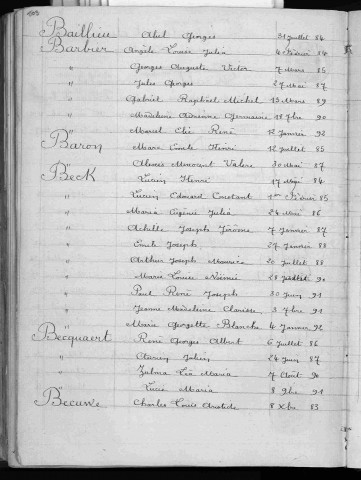 Bailleu Abel Georges 31 juillet 84
Barbier Angèle Louise Julia 4 Février 84
" Georges Auguste Victor 7 Mars 85
" Jules Georges 27 Mai 87
" Gabriel Raphaël Michel 13 Mars 89
" Madeleine Adrienne Germaine 18 7bre 90
" Marcel Elie René 12 Janvier 92
Baron Marie Emile Henri 12 juillet 85
" Alexis Valère 30 Mai 87
Beck Lucien Henri 17 Mai 84
" Lucien Edouard Constant 1er Février 85
" Maria Eugénie Julia 24 Mai 86
" Achille Joseph Jérôme 7 Janvier 87
" Emile Joseph 27 Janvier 88
" Arthur Joseph Maurice 20 juillet 88
" Marie Louise Noémie 28 juillet 90
" Paul René Joseph 30 juin 91
" Jeanne Madeleine Clarisse 3 7bre 91
" Marie Georgette Blanche 4 Janvier 92
Becquaert René Georges Albert 6 juillet 86
" Julien 24 juin 87
" Zulma Léa Maria 7 Août 90
" Lucie Maria 8 9bre 91
Charles Louis Aristide 8 Xbre 83